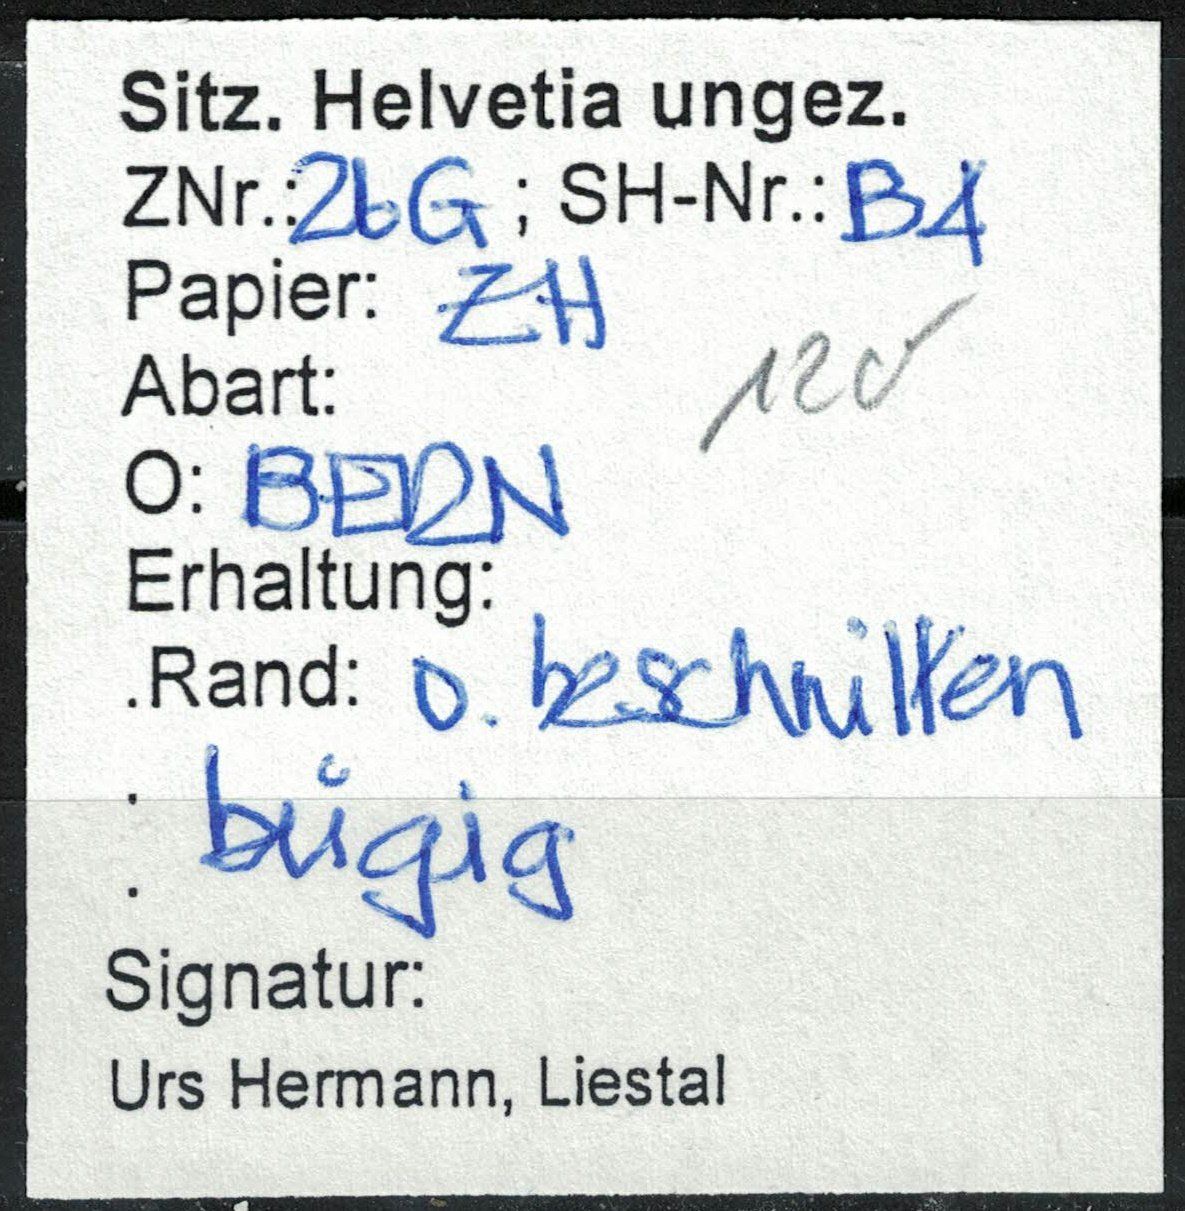 Sitz. Helvetia ungez.
ZNr.: 26G ; SH-Nr.: B4
Papier: ZH
120
Abart:
O: BERN
Erhaltung:
.Rand: o. beschnitten
. bügig
.
Signatur:
Urs Hermann, Liestal